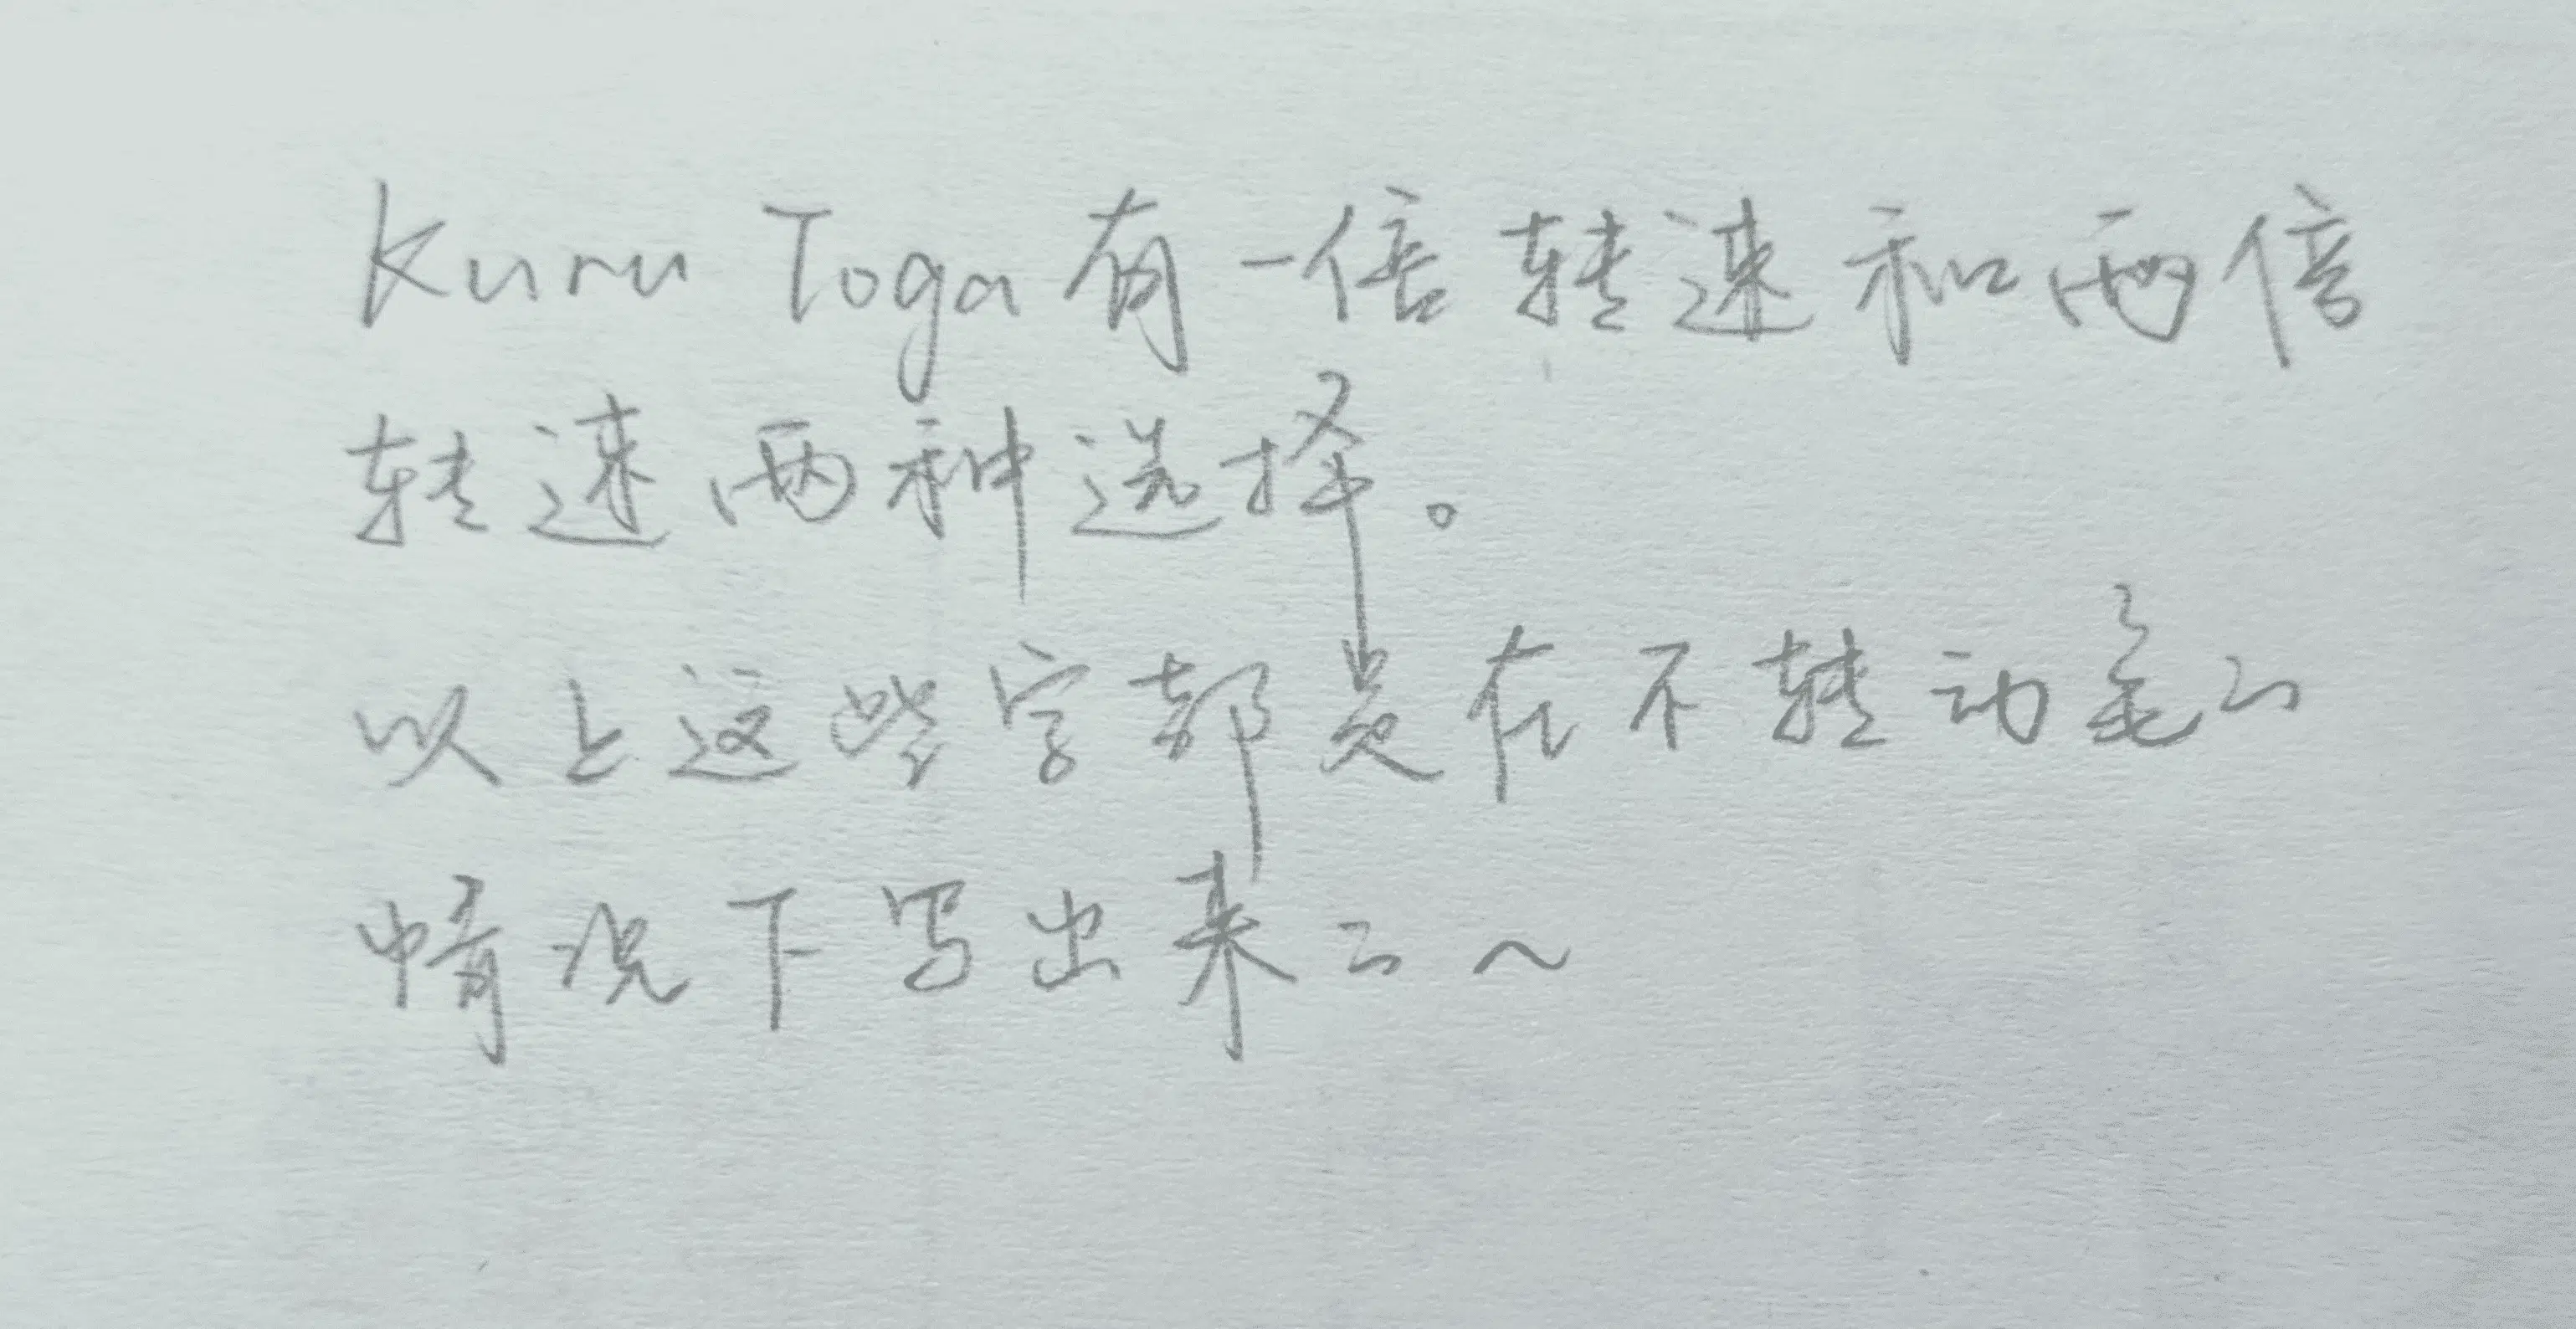 Kuru Toga有一倍转速和两倍
转速两种选择。
以上这些字都是在不转动笔的
情况下写出来的~